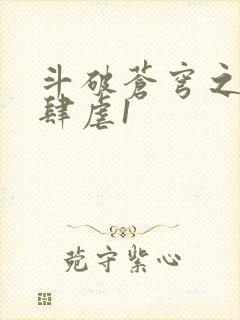 斗破苍穹之
肆虐1
苑守紫心